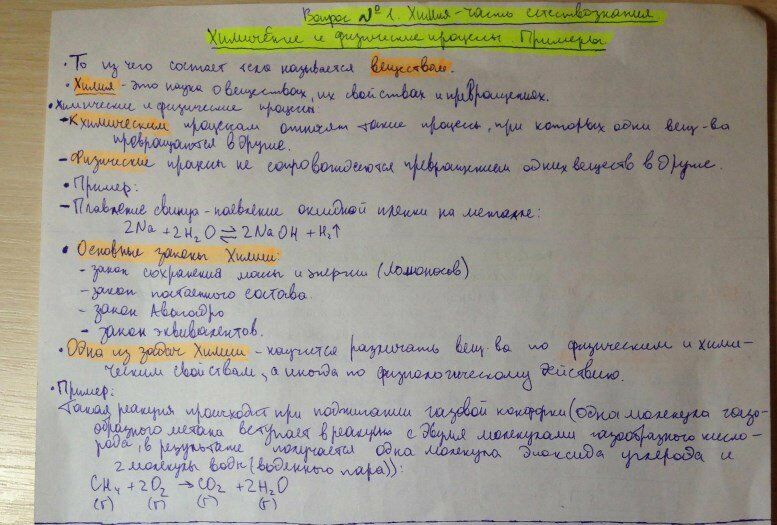 Вопрос №1. Химия - часть естествознания
Химические и физические процессы. Примеры
• То из чего состоит тело называется веществом.
• Химия - это наука о веществах, их свойствах и превращениях.
• Химические и физические процессы
- К химическим процессам относят такие процессы, при которых одни вещ-ва
превращаются в другие.
- Физические процессы не сопровождаются превращением одних веществ в другие.
• Пример:
- Плавление свинца - появление оксидной пленки на металле:
2Na + 2H₂O ⇌ 2NaOH + H₂↑
• Основные законы Химии:
- закон сохранения массы и энергии (Ломоносов)
- закон постоенного состава
- закон Авогадро
- закон эквивалентов.
• Одна из задач Химии - научится различать вещ-ва по физическим и хими-
ческим свойствам, а иногда по физиологическому действию.
• Пример:
Такая реакция происходит при поджигании газовой конфорки (одна молекула газо-
образного метана вступает в реакцию с двумя молекулами газообразного кисло-
рода, в результате получается одна молекула диоксида углерода и
2 молекулы воды (водяного пара)):
CH₄ + 2O₂ → CO₂ + 2H₂O
(г) (г) (г) (г)